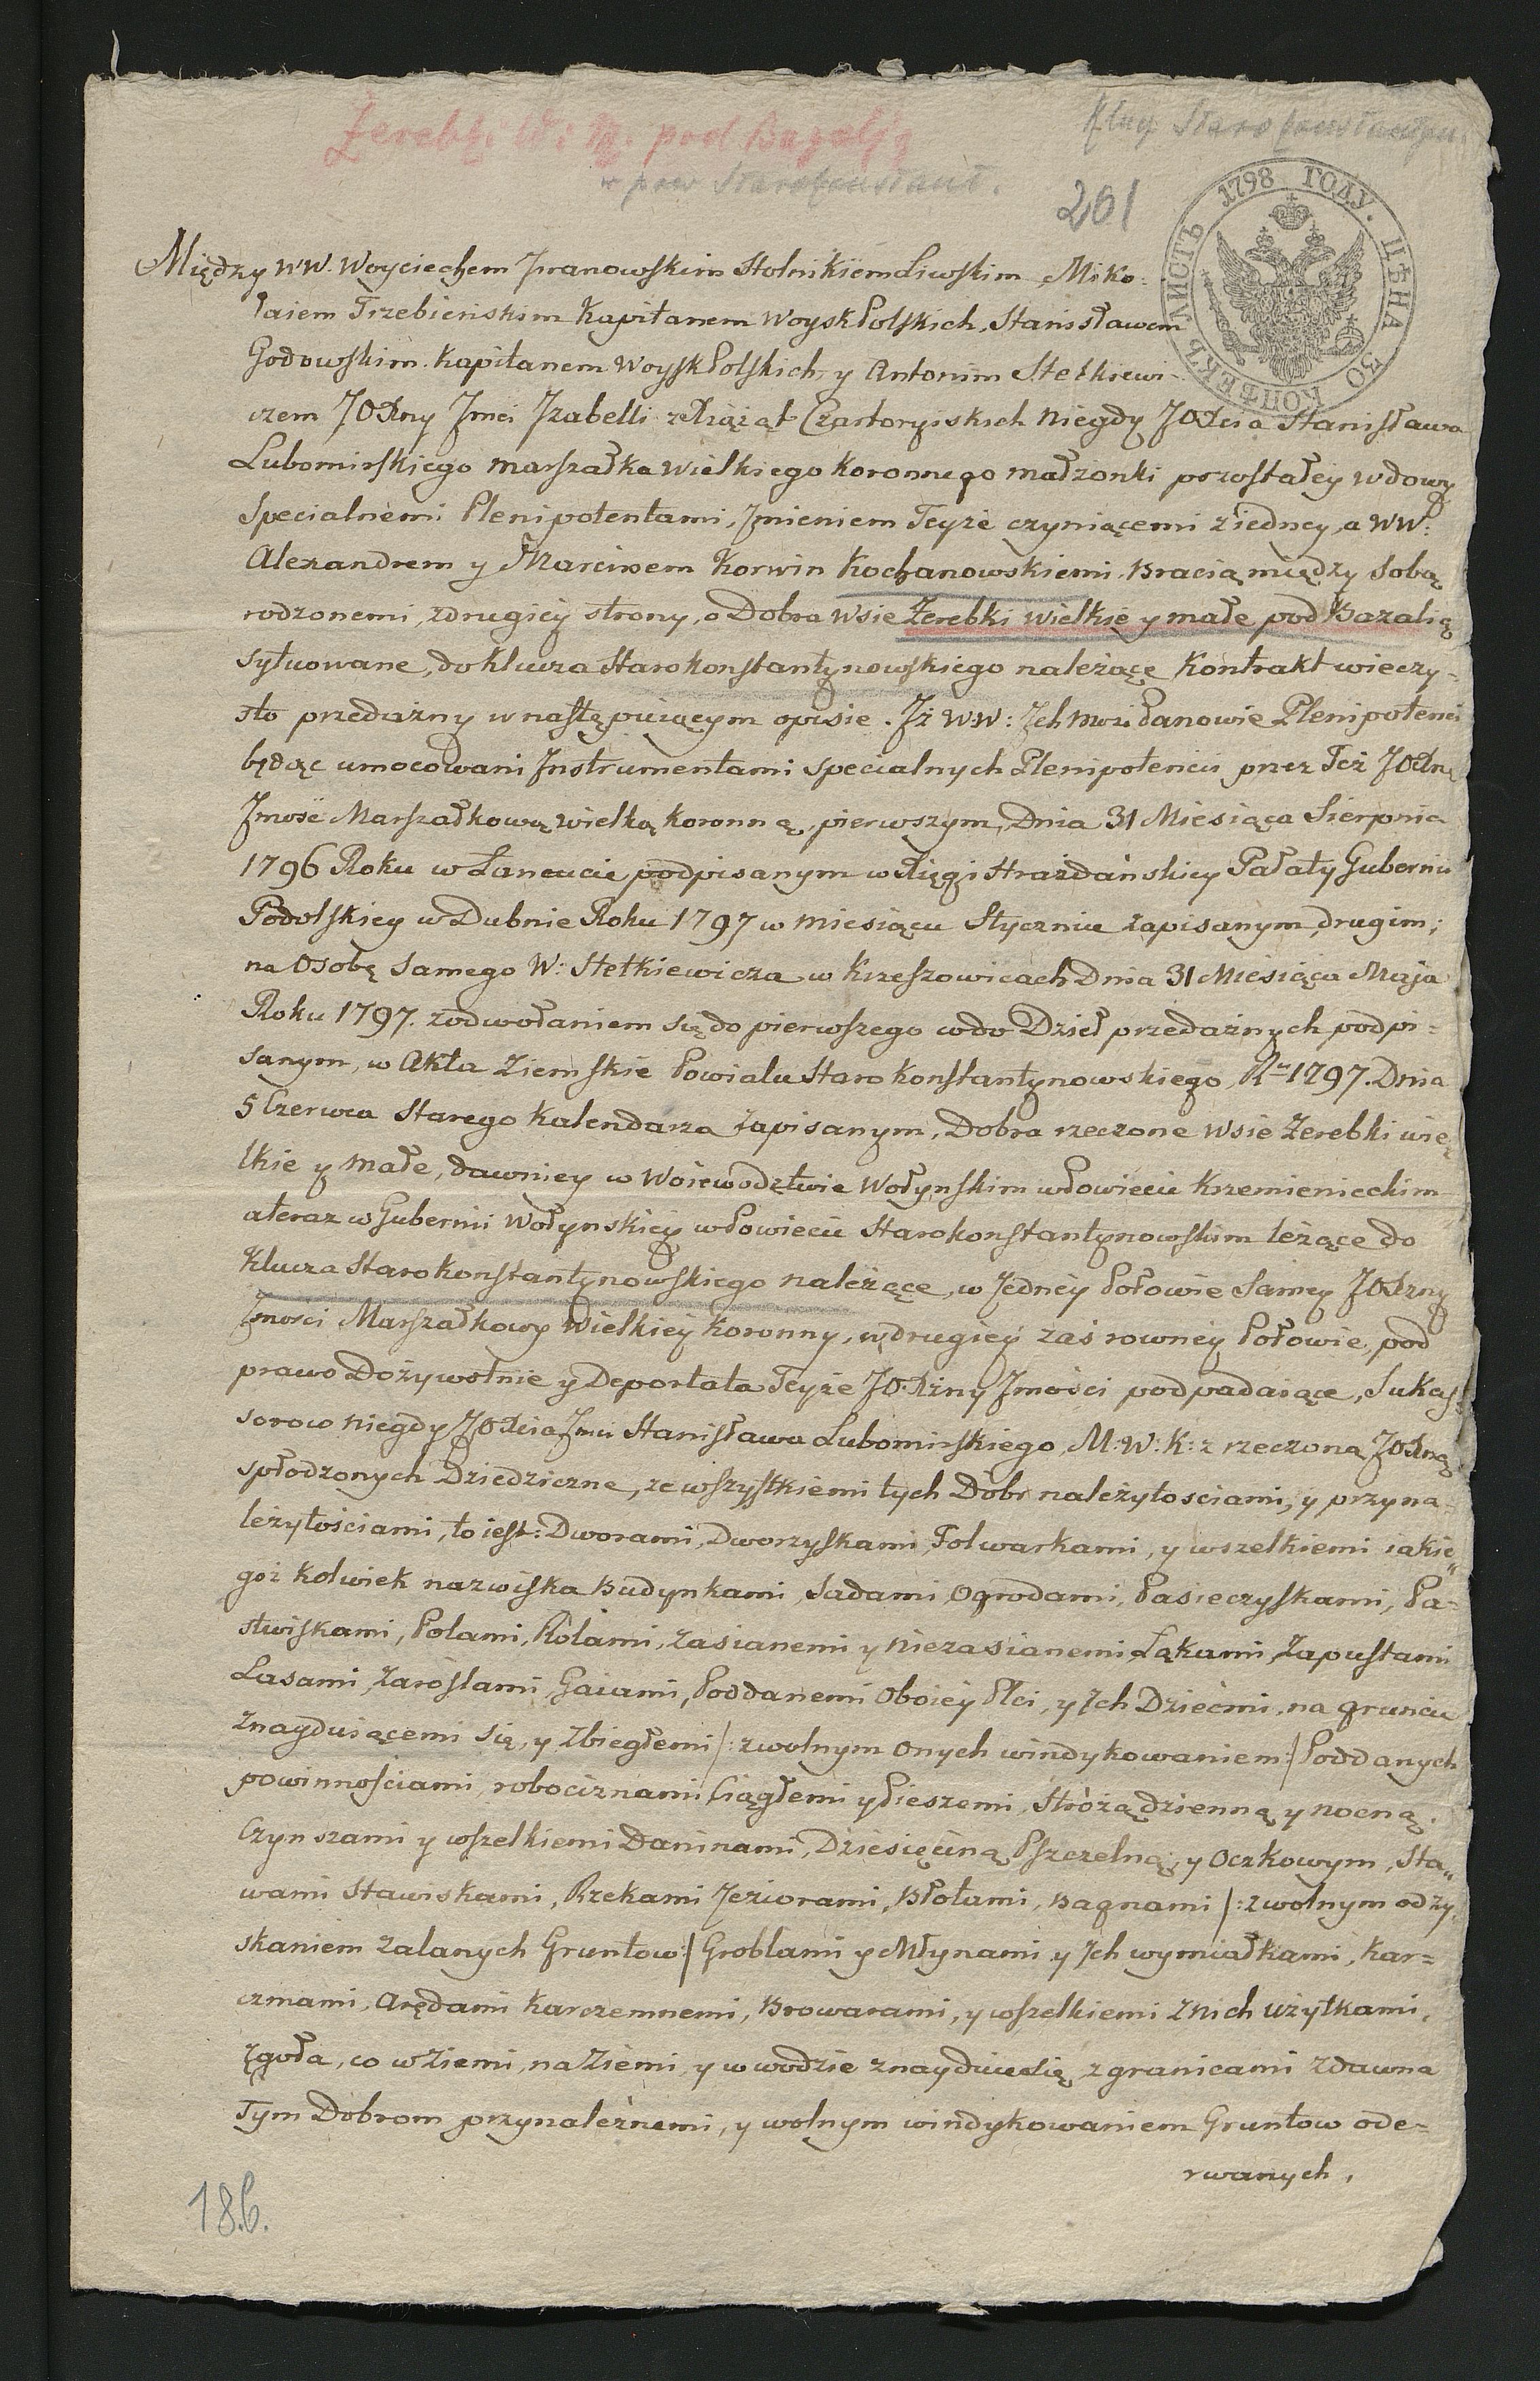 Żerebk. W: i M: pod Bazalją
Klucz Starokonstantyn.
w pow Starokonstant.
201
ЛИСТЪ 1798 ГОДУ. ЦѢНА 30 КОПѢЕКЪ
Między WW. Woyciechem Jranowskim Stolnikiem Liwskim Miko:
łaiem Trzebienskim Kapitanem Woysk Polskich, Stanisławem
Godowskim Kapitanem Woysk Polskich, y Antonim Stetkiewi-
czem JOXny Jmci Jzabelli z Xiążąt Czartoryiskich niegdy JOXcia Stanisława
Lubomirskiego marszałka Wielkiego Koronnego małżonki pozostałey wdowy
Specialnemi Plenipotentami, Jmieniem Teyże czyniącemi z iedney, a WW:
Alexandrem y Marcinem Korwin Kochanowskiemi Bracią między sobą
rodzonemi, z drugiey strony, o Dobra Wsie Żerebki Wielkie y małe pod Bazalią
sytuowane, do Klucza Starokonstantynowskiego należące Kontrakt wieczy-
sto przedażny w następuiącym opisie. Jż WW: Jchmość Panowie Plenipotenci
będąc umocowani Jnstrumentami specialnych Plenipotencii przez Też JOXnę
Jmość Marszałkową wielką Koronną, pierwszym, Dnia 31 Miesiąca Sierpnia
1796 Roku w Łancucie podpisanym w Xięgi Hrażdańskiey Pałaty Gubernii
Podolskiey w Dubnie Roku 1797 w miesiącu Styczniu zapisanym, drugim;
na Osobę Samego W: Stetkiewicza w Krzeszowicach Dnia 31 Miesiąca Maja
Roku 1797. z odwołaniem się do pierwszego w do Dzieł przedażnych podpi-
sanym, w Akta Ziemskie Powiatu Starokonstantynowskiego, Ru 1797. Dnia
5 Czerwca Starego Kalendarza zapisanym, Dobra rzeczone Wsie Żerebki wie
lkie y małe, dawniey w Woiewodztwie Wołynskim w Powiecie Krzemienieckim
a teraz w Gubernii Wołynskiey w Powiecie Starokonstantynowskim leżące do
Klucza Starokonstantynowskiego należące, w Jedney Połowie Samey JOXzny
Jmości Marszałkowy Wielkiey Koronny, w drugiey zaś rowney Połowie, pod
prawo Dożywotnie y Deportata Teyże JO. Xżny Jmości podpadaiące, Sukces
sorow niegdy JOXcia Jmci Stanisława Lubomirskiego, M: W: K: z rzeczoną JOXną
spłodzonych Dziedziczne, ze wszystkiemi tych Dobr należytosciami, y przyna-
leżytościami, to iest: Dworami, Dworzyskami, Folwarkami, y wszelkiemi iakie
goż kolwiek nazwiska Budynkami, Sadami, Ogrodami, Pasieczyskami, Pa-
stwiskami, Polami, Rolami, zasianemi y niezasianemi, Łąkami, Zapustami
Lasami, Zaroślami, Gaiami, Poddanemi Oboiey Płci, y Jch Dziećmi, na gruncie
Znayduiącemi się, y Zbiegłemi /: z wolnym onych windykowaniem :/ Poddanych
powinnościami, robociznami Ciągłemi y Pieszemi, Strożą dzienną y nocną,
Czynszami y wszelkiemi Daninami, Dziesięciną Pszczelną, y Oczkowym, Sta„
wami Stawiskami, Rzekami Jeziorami, Błotami, Bagnami /: z wolnym odzy„
skaniem zalanych Gruntow :/ Groblami y Młynami y Jch wymiałkami, Kar=
czmami, Arędami Karczemnemi, Browarami, y wszelkiemi z nich użytkami,
zgoła, co w Ziemi, na Ziemi, y w wodzie znayduie się, z granicami zdawna
Tym Dobrom przynależnemi, y wolnym windykowaniem Gruntow ode-
rwanych,
186.